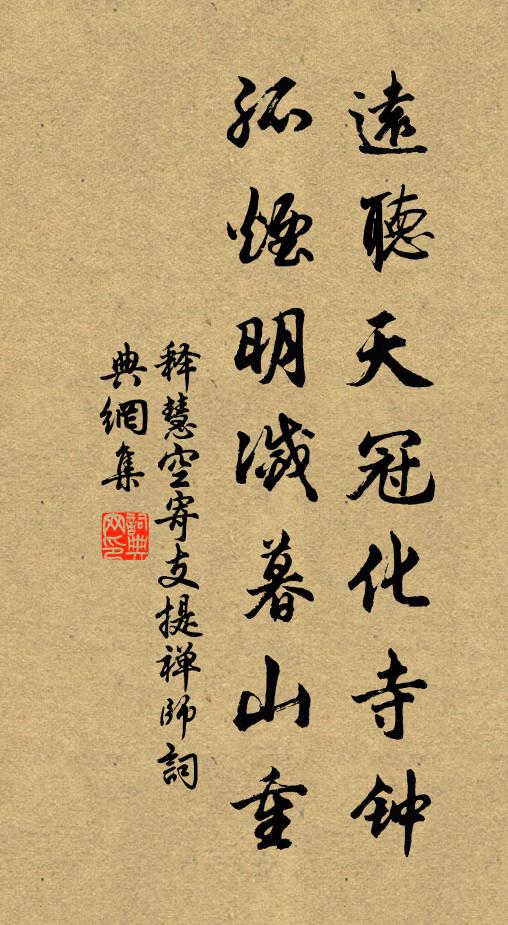 遠聽天冠化寺钟
孤煙明滅暮山重
释慧空寄支提禅师詞
典網集
詞典网印